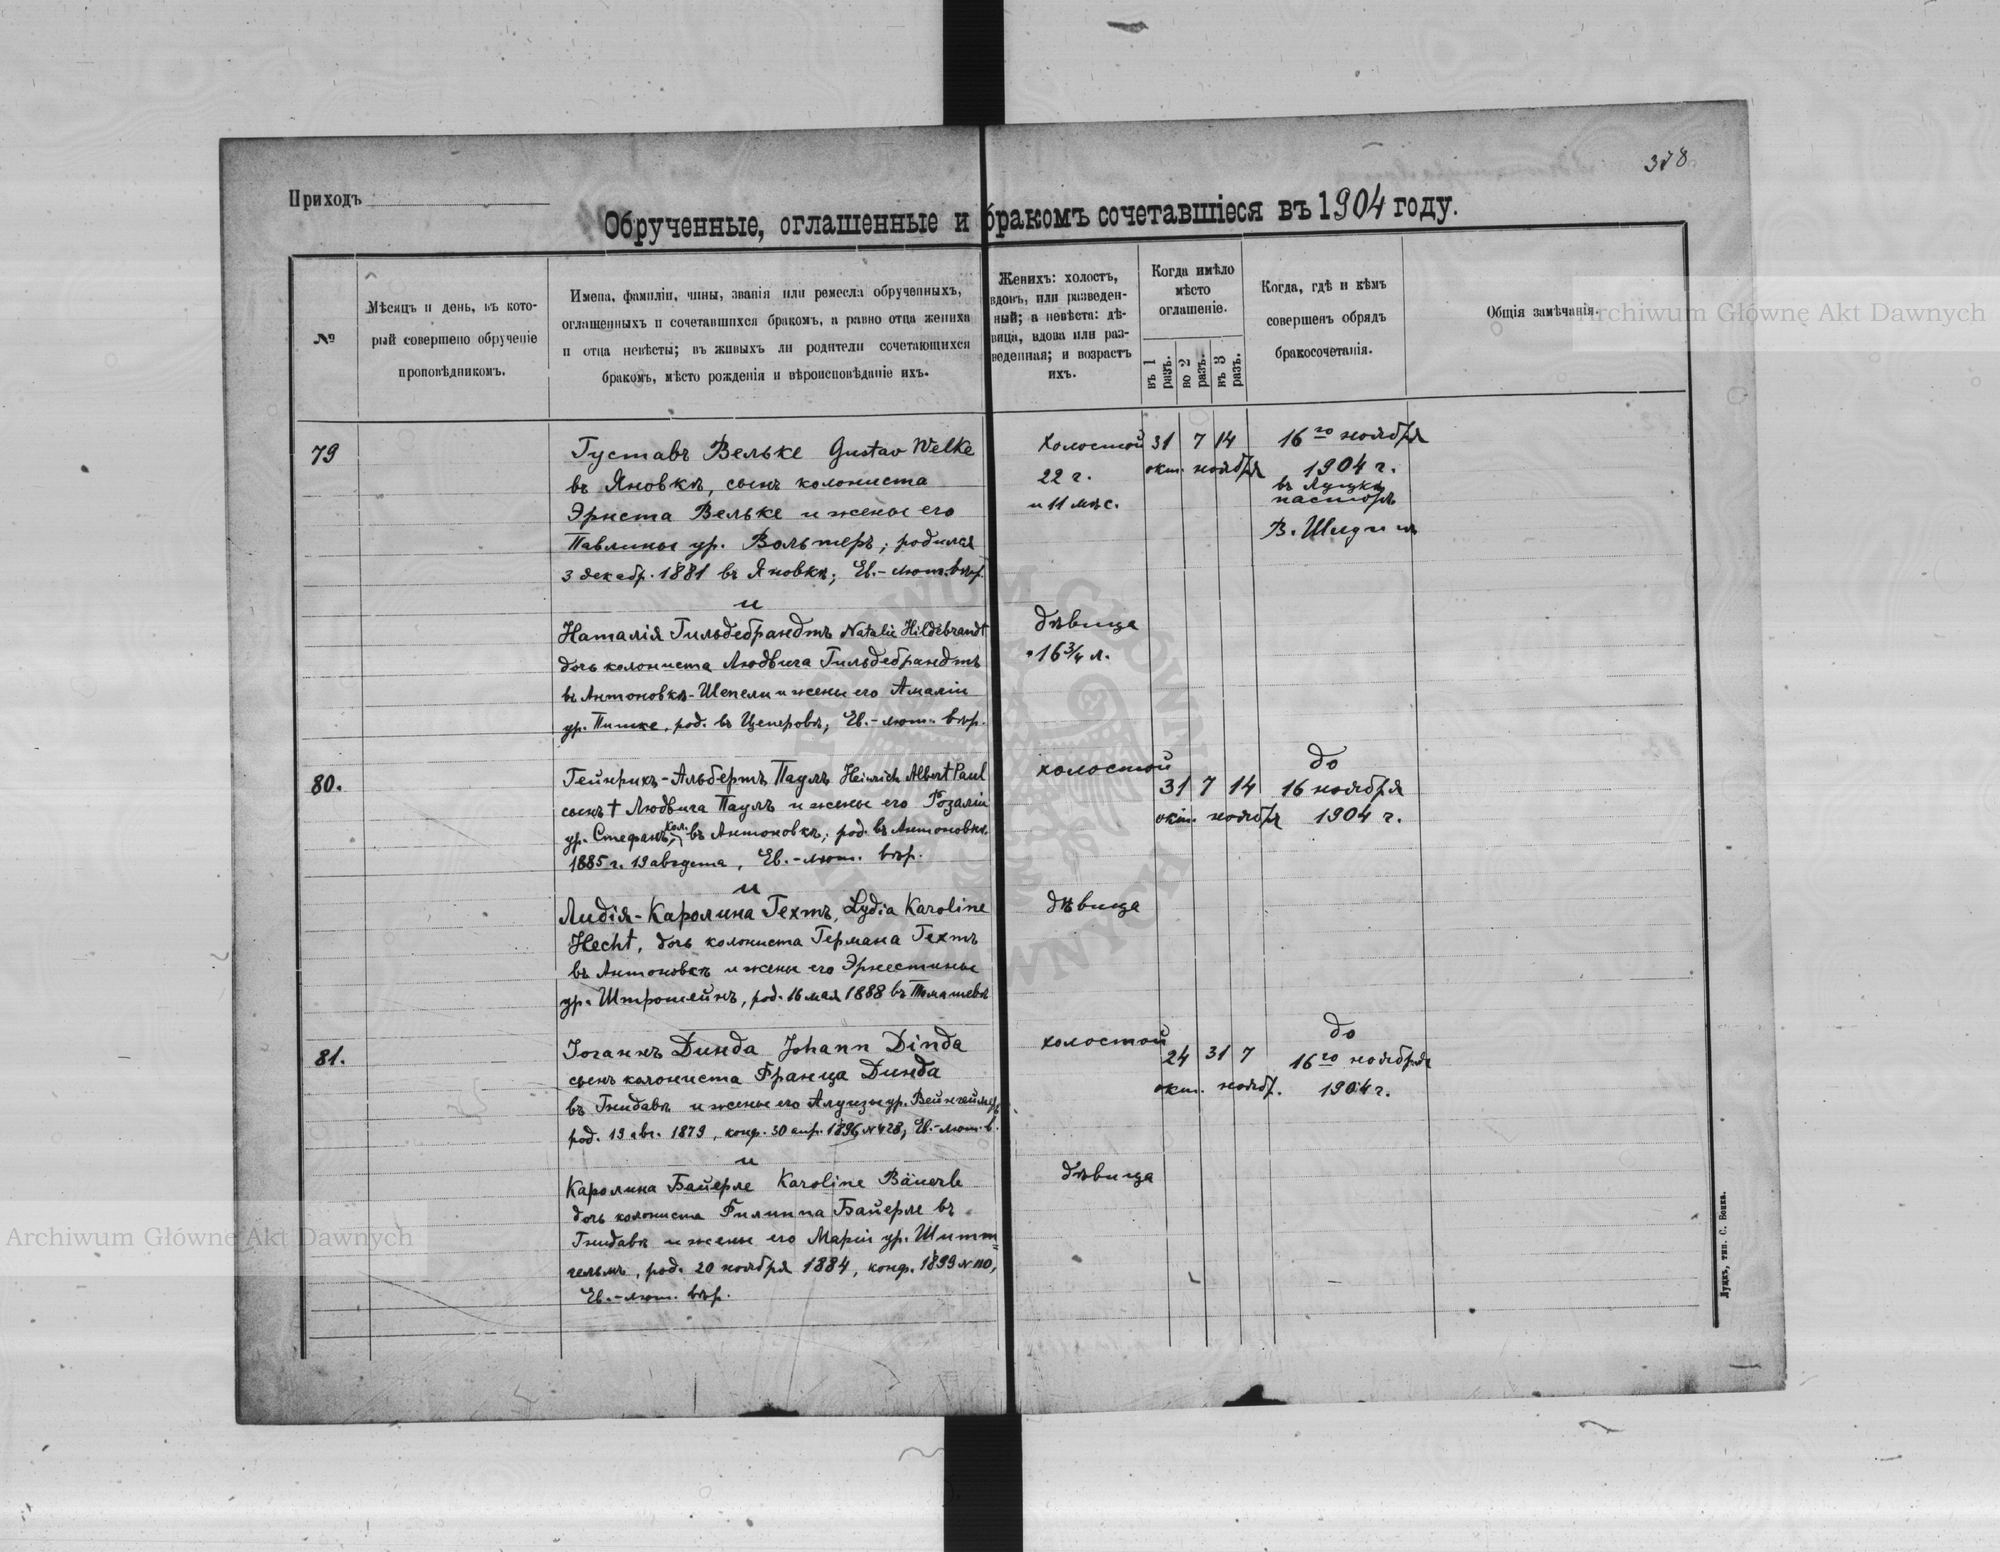 378
Приходъ
Обрученные, оглашенные и бракомъ сочетавшіеся въ 1904 году.
№
Мѣсяцъ и день, въ кото-
рый совершено обрученіе
проповѣдникомъ.
Имена, фамиліи, чины, званія или ремесла обрученныхъ,
оглашенныхъ и сочетавшихся бракомъ, а равно отца жениха
и отца невѣсты; въ живыхъ ли родители сочетающихся
бракомъ, мѣсто рожденія и вѣроисповѣданіе ихъ.
Женихъ: холостъ,
вдовъ, или разведен-
ный; а невѣста: дѣ-
вица, вдова или раз-
веденная; и возрастъ
ихъ.
Когда имѣло
мѣсто
оглашеніе.
въ 1 разъ.
во 2 разъ.
въ 3 разъ.
Когда, гдѣ и кѣмъ
совершенъ обрядъ
бракосочетанія.
Общія замѣчанія.
Archiwum Główne Akt Dawnych
79
Густавъ Вельке Gustav Welke
въ Яновкѣ, сынъ колониста
Эрнста Вельке и жены его
Павлины ур. Вольтеръ; родился
3 декабр. 1881 въ Яновкѣ; Ев.-лют. вѣр.
и
Наталія Гильдебрандтъ Natalie Hildebrandt
дочь колониста Людвига Гильдебрандтъ
въ Антоновкѣ-Шепели и жены его Амаліи
ур. Пишке, род. въ Цеперовѣ; Ев.-лют. вѣр.
холостой
22 г.
и 11 мѣс.
дѣвица
16 3/4 л.
31 7 14
окт. ноября
16го ноября
1904 г.
въ Луцкѣ
пасторъ
В. Шлупп
80.
Гейнрихъ-Альбертъ Пауль Heinrich Albert Paul
сынъ † Людвига Пауль и жены его Розаліи
ур. Стефанъ, кол. въ Антоновкѣ; род. въ Антоновкѣ
1885 г. 19 августа, Ев.-лют. вѣр.
и
Лидія-Каролина Гехтъ, Lydia Karoline
Hecht, дочь колониста Германа Гехтъ
въ Антоновкѣ и жены его Эрнестины
ур. Штрошейнъ, род. 16 мая 1888 въ Томашевѣ
холостой
дѣвица
31 7 14
окт. ноября
до
16 ноября
1904 г.
81.
Іоганнъ Динда Johann Dinda
сынъ колониста Франца Динда
въ Гнидавѣ и жены его Алуизы ур. Вейнгеймеръ
род. 19 авг. 1879, конф. 30 апр. 1896 № 428, Ев.-лют. в.
и
Каролина Байерле Karoline Bäuerle
дочь колониста Филиппа Байерле въ
Гнидавѣ и жены его Маріи ур. Шитт=
гельмъ, род. 20 ноября 1884, конф. 1899 № 110,
Ев.-лют. вѣр.
холостой
дѣвица
24 31 7
окт. ноябр.
до
16го ноября
1904 г.
Луцкъ, тип. С. Бокка.
Archiwum Główne Akt Dawnych
ARCHIWUM GŁÓWNE AKT DAWNYCH